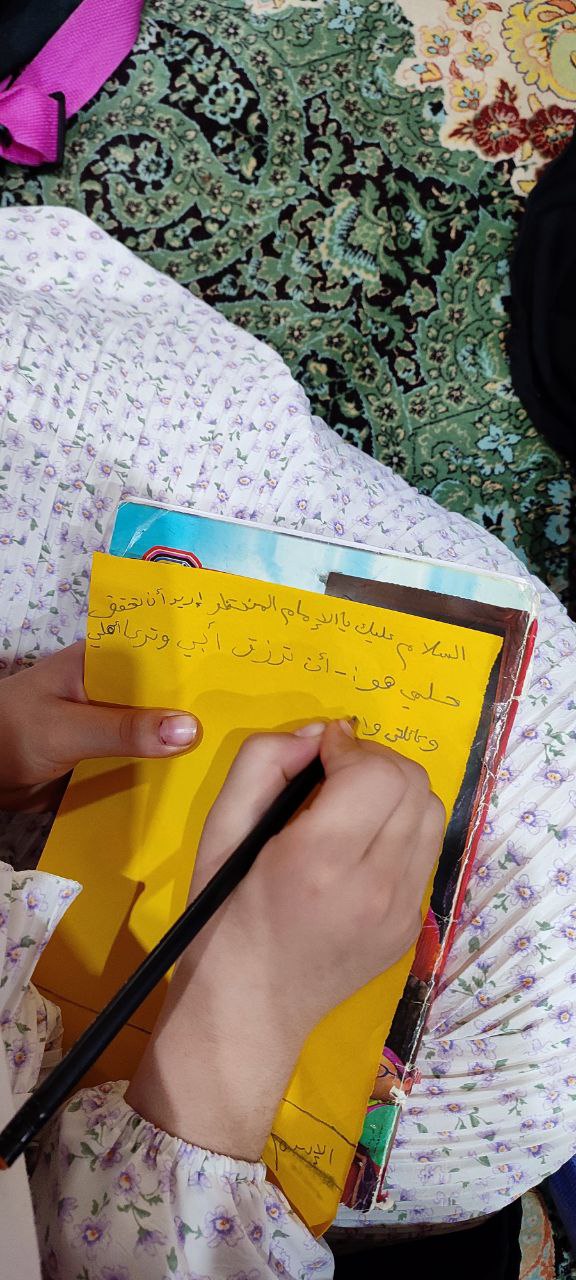 السلام عليك يا الإمام المنتظر إريد أن تحقق
حلمي هو :- أن ترزق أبي وترعا أهلي
وعائلتي وا
الإسم